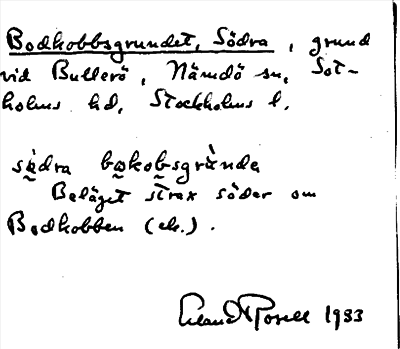 Bodkobbsgrundet, Södra, grund
vid Bullerö, Nämdö sn, Sot-
holms hd, Stockholms l.
sö̀dra bo̰kobsgrùnde
Beläget strax söder om
Bodkobben (ek.).
Erland Rosell 1933